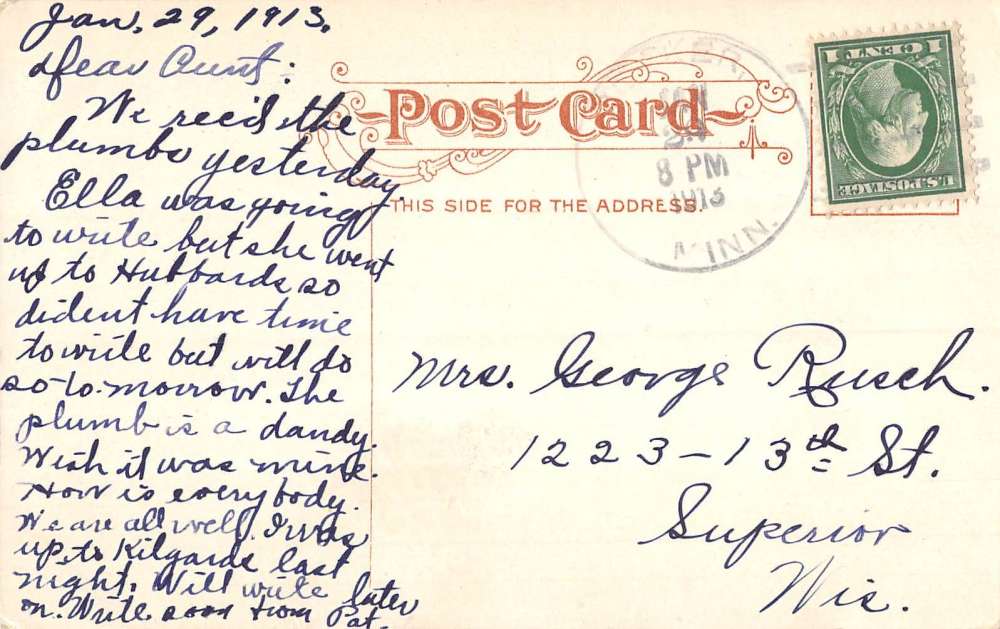 Jan. 29, 1913.
Dear Aunt:
We rec'd the
plumbo yesterday.
Ella was going
to write but she went
up to Hubbards so
dident have time
to write but will do
so to-morrow. The
plumb is a dandy.
Wish it was mine.
How is everybody.
We are all well. I was
up to Kilgards last
night. Will write later
on. Write soon from Pat.
Post Card
THIS SIDE FOR THE ADDRESS.
8 PM
1913
MINN.
1 CENT 1
U.S. POSTAGE
Mrs. George Rusch.
1223-13th St.
Superior
Wis.